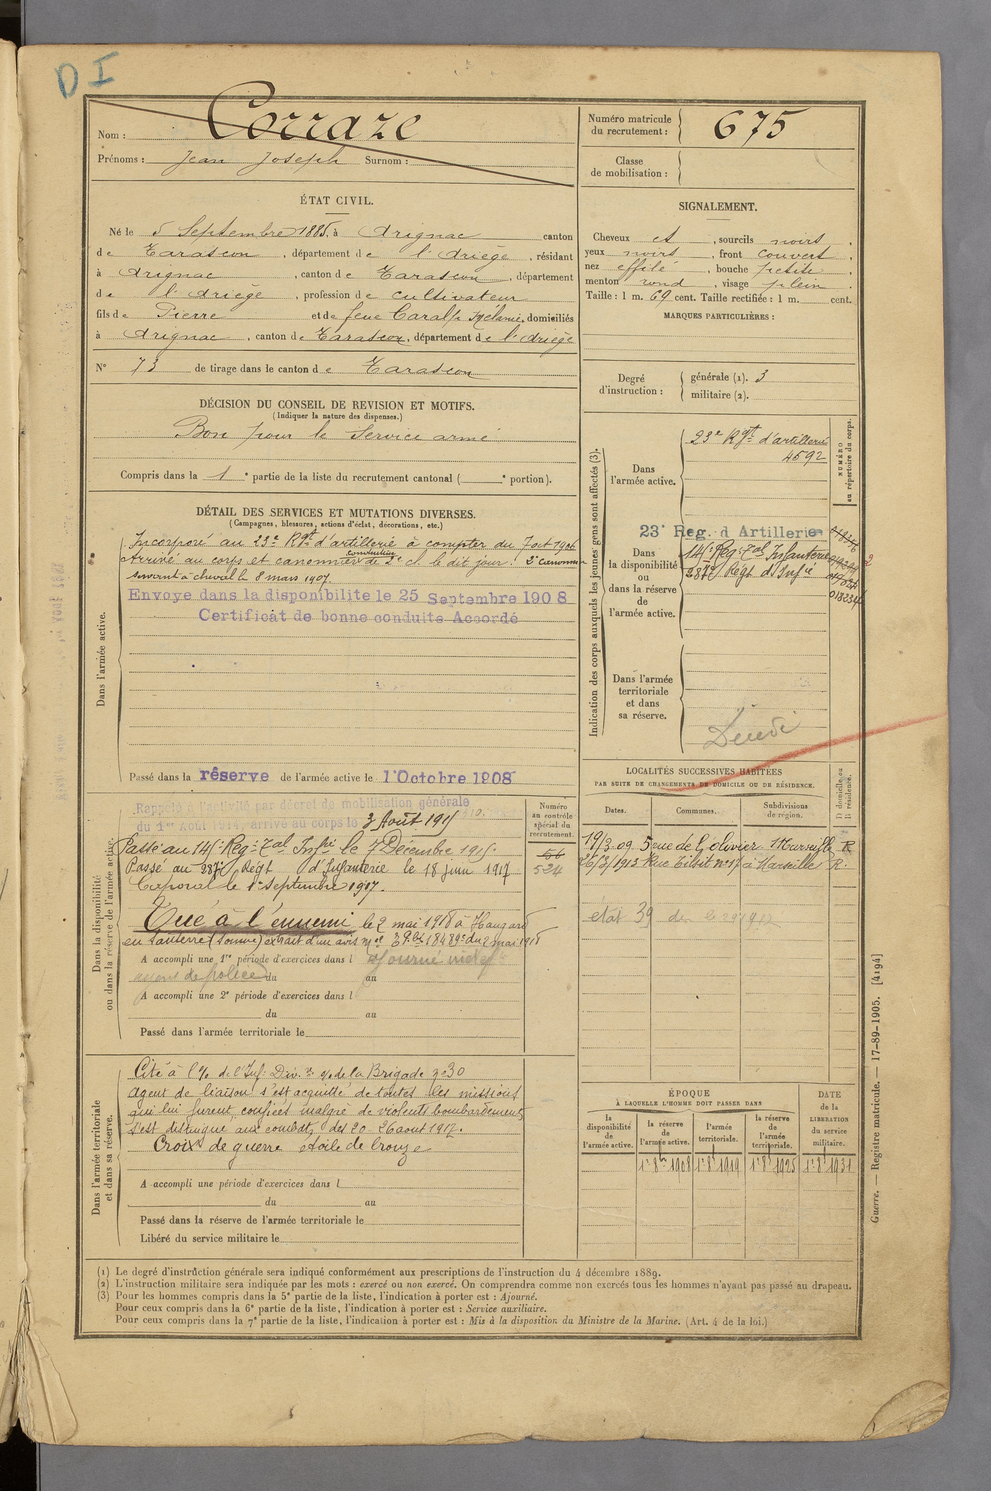 D I
Nom : Corraze
Prénoms : Jean Joseph Surnom :
Numéro matricule du recrutement : 675
Classe de mobilisation :
ÉTAT CIVIL.
Né le 5 Septembre 1885, à Arignac canton
de Tarascon, département de l'Ariège, résidant
à Arignac, canton de Tarascon, département
de l'Ariège, profession de cultivateur
fils de Pierre et de feue Caralp Mélanie, domiciliés
à Arignac, canton de Tarascon, département de l'Ariège
N° 73 de tirage dans le canton de Tarascon
SIGNALEMENT.
Cheveux et, sourcils noirs,
yeux noirs, front couvert,
nez effilé, bouche petite,
menton rond, visage plein.
Taille : 1 m. 69 cent. Taille rectifiée : 1 m. cent.
MARQUES PARTICULIÈRES :
Degré d'instruction : générale (1). 3
militaire (2).
DÉCISION DU CONSEIL DE REVISION ET MOTIFS.
(Indiquer la nature des dispenses.)
Bon pour le Service armé
Compris dans la 1e partie de la liste du recrutement cantonal ( e portion).
DÉTAIL DES SERVICES ET MUTATIONS DIVERSES.
(Campagnes, blessures, actions d'éclat, décorations, etc.)
Dans l'armée active.
Incorporé au 23e Rgt d'artillerie à compter du 7 oct 1906
Arrivé au corps et canonnier conducteur de 2e cl. le dit jour. 2e canonnier
servant à cheval le 8 mars 1907.
Envoye dans la disponibilite le 25 Septembre 1908
Certificat de bonne conduite Accordé
Passé dans la réserve de l'armée active le 1 Octobre 1908
Indication des corps auxquels les jeunes gens sont affectés (3).
NUMÉRO au répertoire du corps.
Dans l'armée active.
23e Rgt d'artillerie
4592
Dans la disponibilité ou dans la réserve de l'armée active.
23e Reg. d Artillerie
141e Reg. Tal Infanterie
287e Régt d'Infie
Dans l'armée territoriale et dans sa réserve.
LOCALITÉS SUCCESSIVES HABITÉES
PAR SUITE DE CHANGEMENTS DE DOMICILE OU DE RÉSIDENCE.
Dates. Communes. Subdivisions de région. D domicile ou R résidence.
19/3.09 5 rue de l'olivier Marseille R
26/3/1913 Rue Tibit n° 17 à Marseille R.
Dans la disponibilité ou dans la réserve de l'armée active
Numéro au contrôle spécial du recrutement.
56
524
Rappelé à l'activité par décret de mobilisation générale
du 1er Août 1914, arrivé au corps le 3 Août 1915
Passé au 141e Reg. Tal Infie le 7 Décembre 1915
Passé au 287e Régt d'Infanterie le 18 juin 1917
Caporal le 1er Septembre 1917.
Tué à l'ennemi le 2 mai 1918 à Hangard
en Santerre (Somme) extrait d'un avis du 2 mai 1918
A accompli une 1re période d'exercices dans l
agent de police du au
A accompli une 2e période d'exercices dans l
du au
Passé dans l'armée territoriale le
Dans l'armée territoriale et dans sa réserve.
Cité à l'o/ de l'Inf. Dive o/ de la Brigade n° 30
Agent de liaison s'est acquitté de toutes les missions
qui lui furent confiées malgré de violents bombardements
S'est distingué aux combats des 20-26 août 1917.
Croix de guerre étoile de bronze
A accompli une période d'exercices dans l
du au
Passé dans la réserve de l'armée territoriale le
Libéré du service militaire le
ÉPOQUE
À LAQUELLE L'HOMME DOIT PASSER DANS
la disponibilité de l'armée active. la réserve de l'armée active. l'armée territoriale. la réserve de l'armée territoriale. DATE de la LIBÉRATION du service militaire.
1er 8bre 1908 1er 8bre 1919 1er 8bre 1925 1er 8bre 1931
Guerre. — Registre matricule. — 17-89-1905. [4194]
(1) Le degré d'instruction générale sera indiqué conformément aux prescriptions de l'instruction du 4 décembre 1889.
(2) L'instruction militaire sera indiquée par les mots : exercé ou non exercé. On comprendra comme non exercés tous les hommes n'ayant pas passé au drapeau.
(3) Pour les hommes compris dans la 5e partie de la liste, l'indication à porter est : Ajourné.
Pour ceux compris dans la 6e partie de la liste, l'indication à porter est : Service auxiliaire.
Pour ceux compris dans la 7e partie de la liste, l'indication à porter est : Mis à la disposition du Ministre de la Marine. (Art. 4 de la loi.)